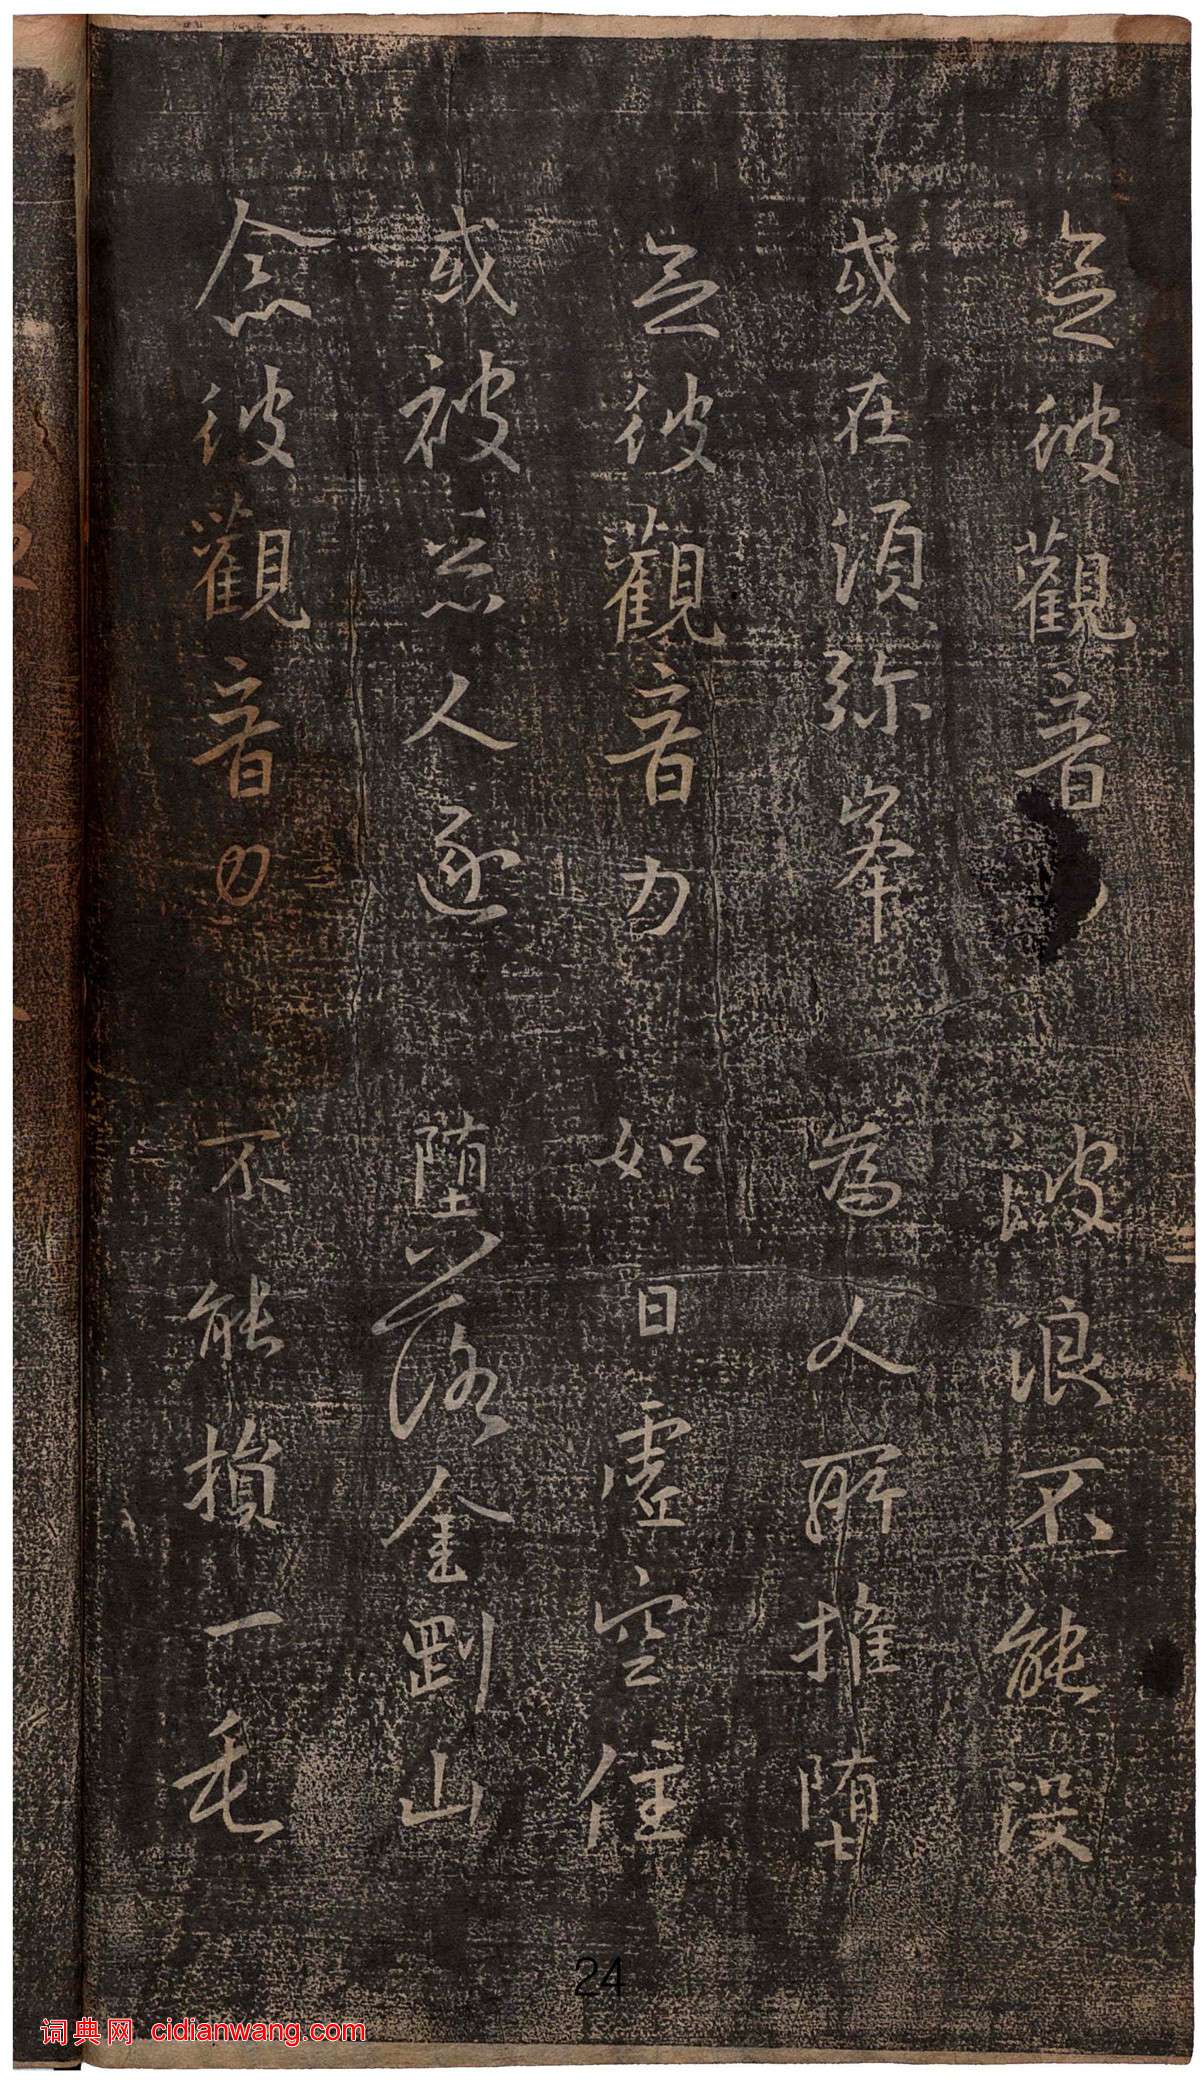 念彼觀音　波浪不能沒
或在須彌峯　為人所推墮
念彼觀音力　如日虛空住
或被惡人逐　墮落金剛山
念彼觀音力　不能損一毛
24
词典网 cidianwang.com